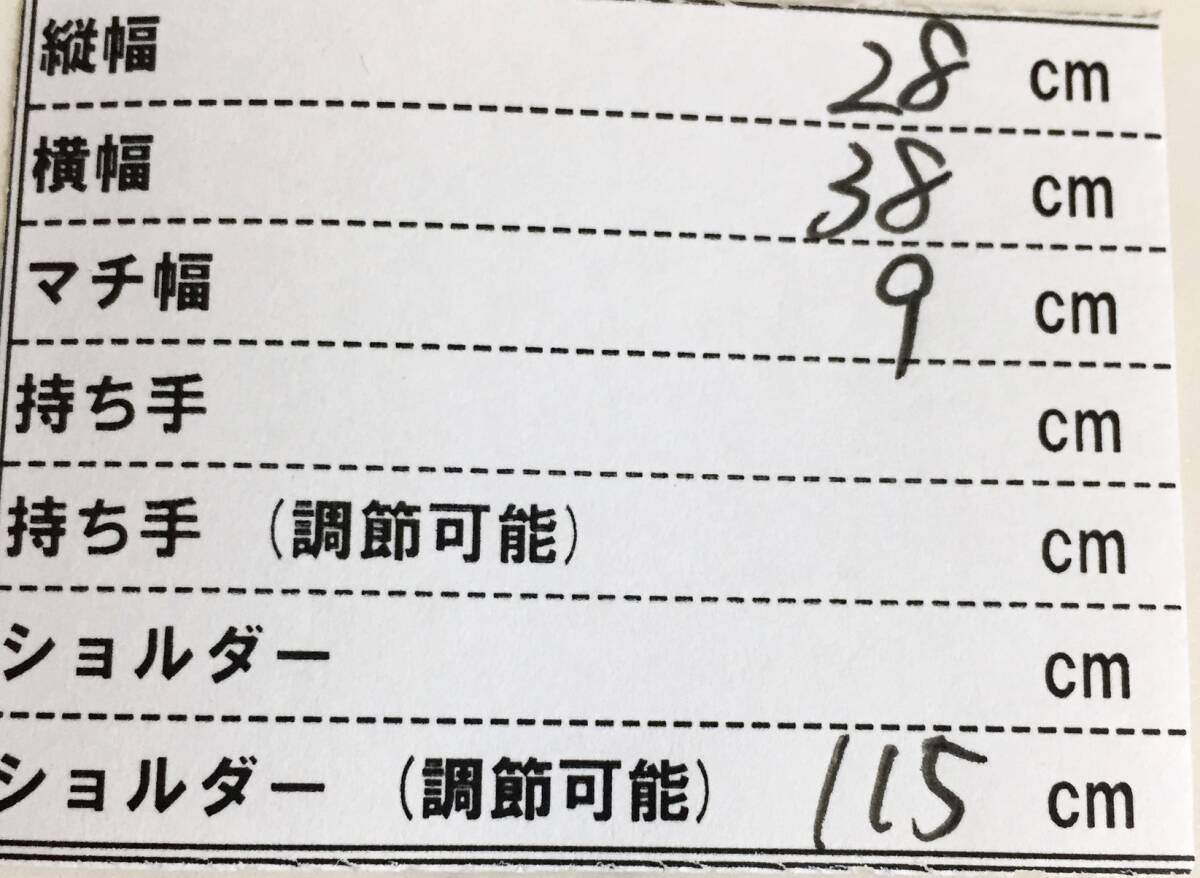 縦幅 28 cm
横幅 38 cm
マチ幅 9 cm
持ち手 cm
持ち手 (調節可能) cm
ショルダー cm
ショルダー (調節可能) 115 cm